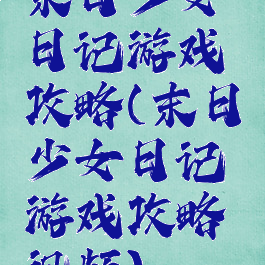 末日少女
日记游戏
攻略(末日
少女日记
游戏攻略
视频)